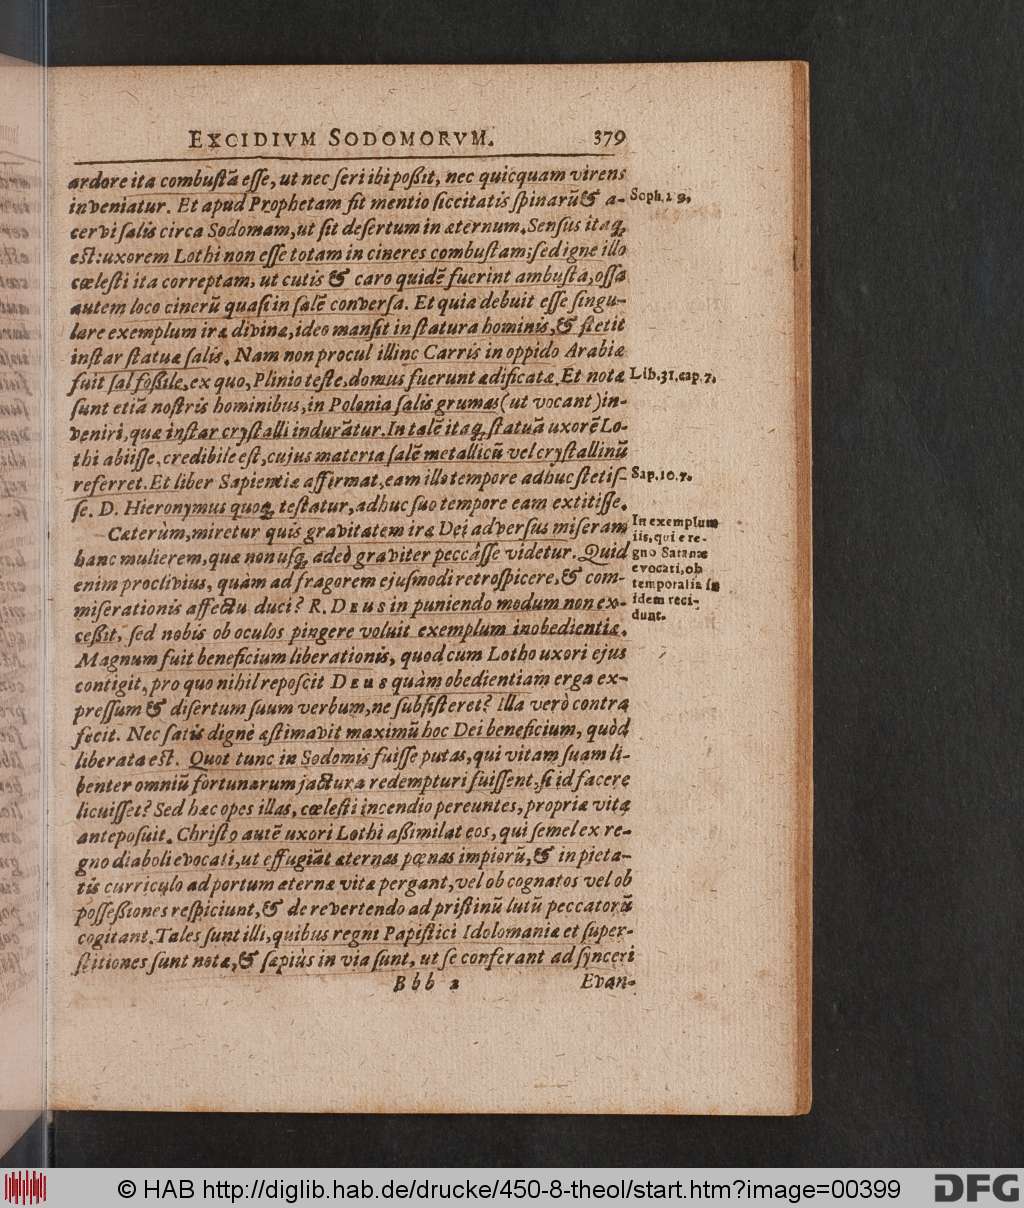 EXCIDIVM SODOMORVM. 379
ardore ita combustã esse, ut nec seri ibi poßit, nec quicquam virens
inveniatur. Et apud Prophetam fit mentio siccitatis spinarũ & a-
cervi salis circa Sodomam, ut sit desertum in æternum. Sensus itaq;
est: uxorem Lothi non esse totam in cineres combustam; sed igne illo
cœlesti ita correptam, ut cutis & caro quidẽ fuerint ambusta, ossa
autem loco cinerũ quasi in salẽ conversa. Et quia debuit esse singu-
lare exemplum iræ divinæ, ideo mansit in statura hominis, & stetit
instar statuæ salis. Nam non procul illinc Carris in oppido Arabiæ
fuit sal foßile, ex quo, Plinio teste, domus fuerunt ædificatæ. Et notæ
sunt etiã nostris hominibus, in Polonia salis grumas (ut vocant) in-
veniri, quæ instar crystalli indurãtur. In talẽ itaq; statuã uxorẽ Lo-
thi abiisse, credibile est, cujus materia salẽ metallicũ vel crystallinũ
referret. Et liber Sapientiæ affirmat, eam illo tempore adhuc stetis-
se. D. Hieronymus quoq; testatur, adhuc suo tempore eam extitisse.
Cæterùm, miretur quis gravitatem iræ Dei adversus miseram
hanc mulierem, quæ non usq; adeò graviter peccâsse videtur. Quid
enim proclivius, quàm ad fragorem ejusmodi retrospicere, & com-
miserationis affectu duci? R. DEUS in puniendo modum non ex-
ceßit, sed nobis ob oculos pingere voluit exemplum inobedientiæ.
Magnum fuit beneficium liberationis, quod cum Lotho uxori ejus
contigit, pro quo nihil reposcit DEUS quàm obedientiam erga ex-
pressum & disertum suum verbum, ne subsisteret? Illa verò contra
fecit. Nec satis dignè æstimavit maximũ hoc Dei beneficium, quòd
liberata est. Quot tunc in Sodomis fuisse putas, qui vitam suam li-
benter omniũ fortunarum jactura redempturi fuissent, si id facere
licuisset? Sed hæc opes illas, cœlesti incendio pereuntes, propriæ vitæ
anteposuit. Christ9 autẽ uxori Lothi aßimilat eos, qui semel ex re-
gno diaboli evocati, ut effugiãt æternas pœnas impiorũ, & in pieta-
tis curriculo ad portum æternæ vitæ pergant, vel ob cognatos vel ob
possessiones respiciunt, & de revertendo ad pristinũ lutũ peccatorũ
cogitant. Tales sunt illi, quibus regni Papistici Idolomaniæ et super-
stitiones sunt notæ, & sæpiùs in via sunt, ut se conferant ad synceri
Bbb 2 Evan-
Soph. 2 9,
Lib. 31. cap. 7.
Sap. 10. 7.
In exemplum
iis, qui e re-
gno Satanæ
evocati, ob
temporalia in
idem reci-
dunt.
© HAB http://diglib.hab.de/drucke/450-8-theol/start.htm?image=00399
DFG